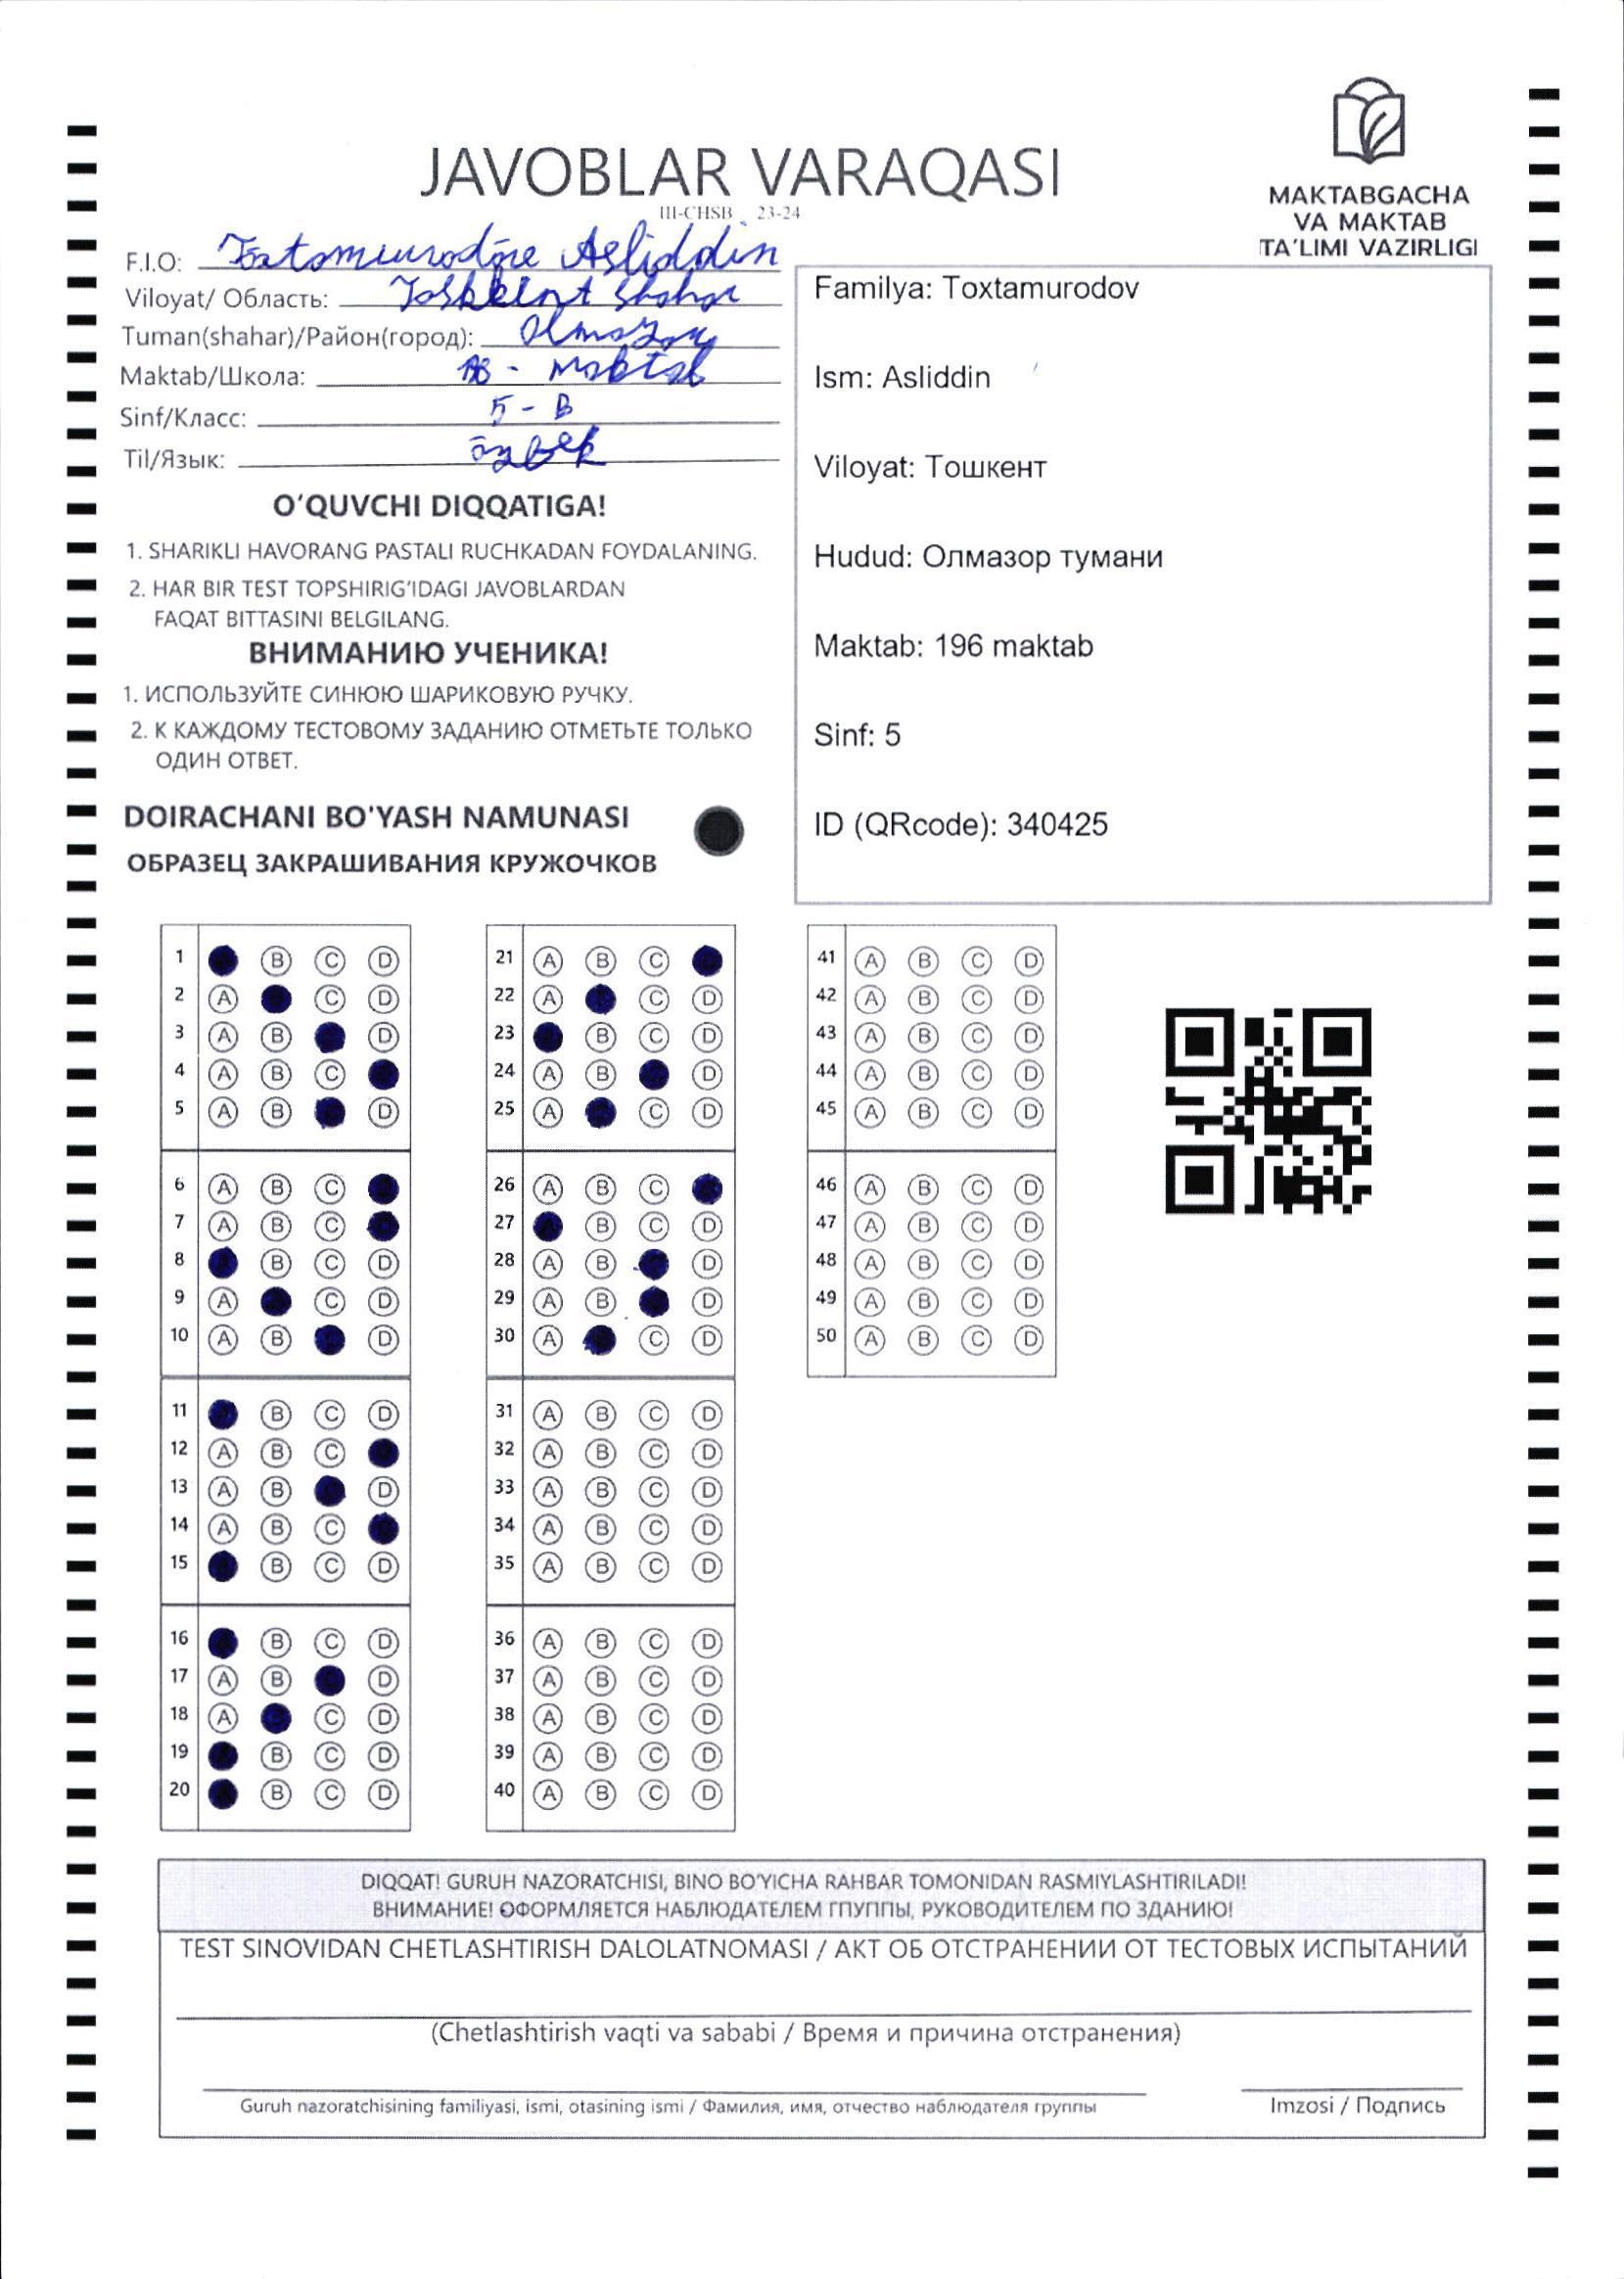 JAVOBLAR VARAQASI
III-CHSB 23-24
MAKTABGACHA
VA MAKTAB
TA'LIMI VAZIRLIGI
F.I.O: Asliddin
Viloyat/ Область: Toshkent shahar
Tuman(shahar)/Район(город): Olmazor
Maktab/Школа: - maktab
Sinf/Класс: 5 - B
Til/Язык: õzbek
Familya: Toxtamurodov
Ism: Asliddin
Viloyat: Тошкент
Hudud: Олмазор тумани
Maktab: 196 maktab
Sinf: 5
ID (QRcode): 340425
O'QUVCHI DIQQATIGA!
1. SHARIKLI HAVORANG PASTALI RUCHKADAN FOYDALANING.
2. HAR BIR TEST TOPSHIRIG'IDAGI JAVOBLARDAN
FAQAT BITTASINI BELGILANG.
ВНИМАНИЮ УЧЕНИКА!
1. ИСПОЛЬЗУЙТЕ СИНЮЮ ШАРИКОВУЮ РУЧКУ.
2. К КАЖДОМУ ТЕСТОВОМУ ЗАДАНИЮ ОТМЕТЬТЕ ТОЛЬКО
ОДИН ОТВЕТ.
DOIRACHANI BO'YASH NAMUNASI
ОБРАЗЕЦ ЗАКРАШИВАНИЯ КРУЖОЧКОВ
1 B C D
2 A C D
3 A B D
4 A B C
5 A B D
6 A B C
7 A B C
8 B C D
9 A C D
10 A B D
11 B C D
12 A B C
13 A B D
14 A B C
15 B C D
16 B C D
17 A B D
18 A C D
19 B C D
20 B C D
21 A B C
22 A C D
23 B C D
24 A B D
25 A C D
26 A B C
27 B C D
28 A B D
29 A B D
30 A C D
31 A B C D
32 A B C D
33 A B C D
34 A B C D
35 A B C D
36 A B C D
37 A B C D
38 A B C D
39 A B C D
40 A B C D
41 A B C D
42 A B C D
43 A B C D
44 A B C D
45 A B C D
46 A B C D
47 A B C D
48 A B C D
49 A B C D
50 A B C D
DIQQAT! GURUH NAZORATCHISI, BINO BO'YICHA RAHBAR TOMONIDAN RASMIYLASHTIRILADI!
ВНИМАНИЕ! ОФОРМЛЯЕТСЯ НАБЛЮДАТЕЛЕМ ГПУППЫ, РУКОВОДИТЕЛЕМ ПО ЗДАНИЮ!
TEST SINOVIDAN CHETLASHTIRISH DALOLATNOMASI / АКТ ОБ ОТСТРАНЕНИИ ОТ ТЕСТОВЫХ ИСПЫТАНИЙ
(Chetlashtirish vaqti va sababi / Время и причина отстранения)
Guruh nazoratchisining familiyasi, ismi, otasining ismi / Фамилия, имя, отчество наблюдателя группы
Imzosi / Подпись